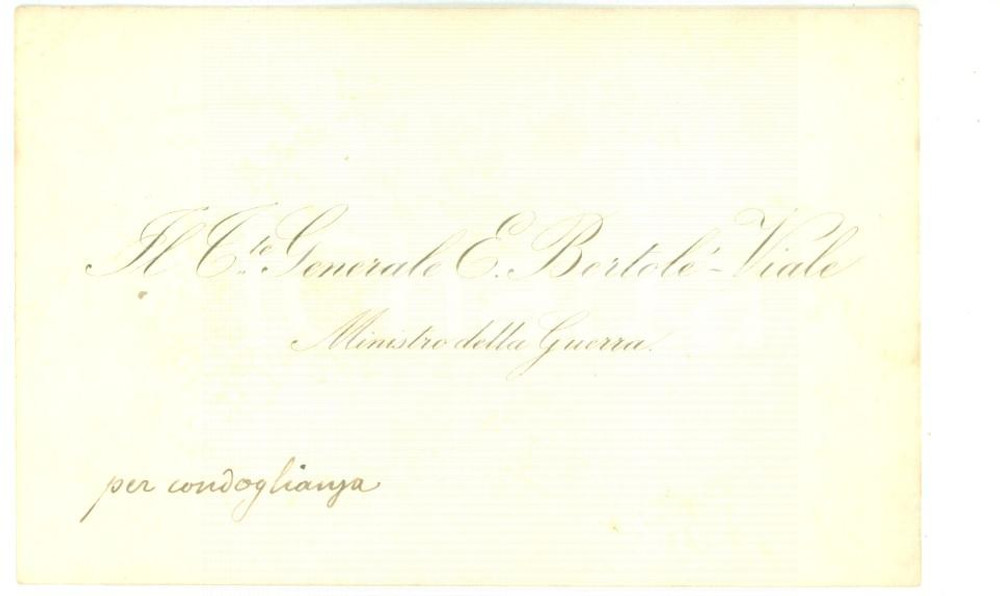 Il T.te Generale E. Bertolé-Viale
Ministro della Guerra.
per condoglianza